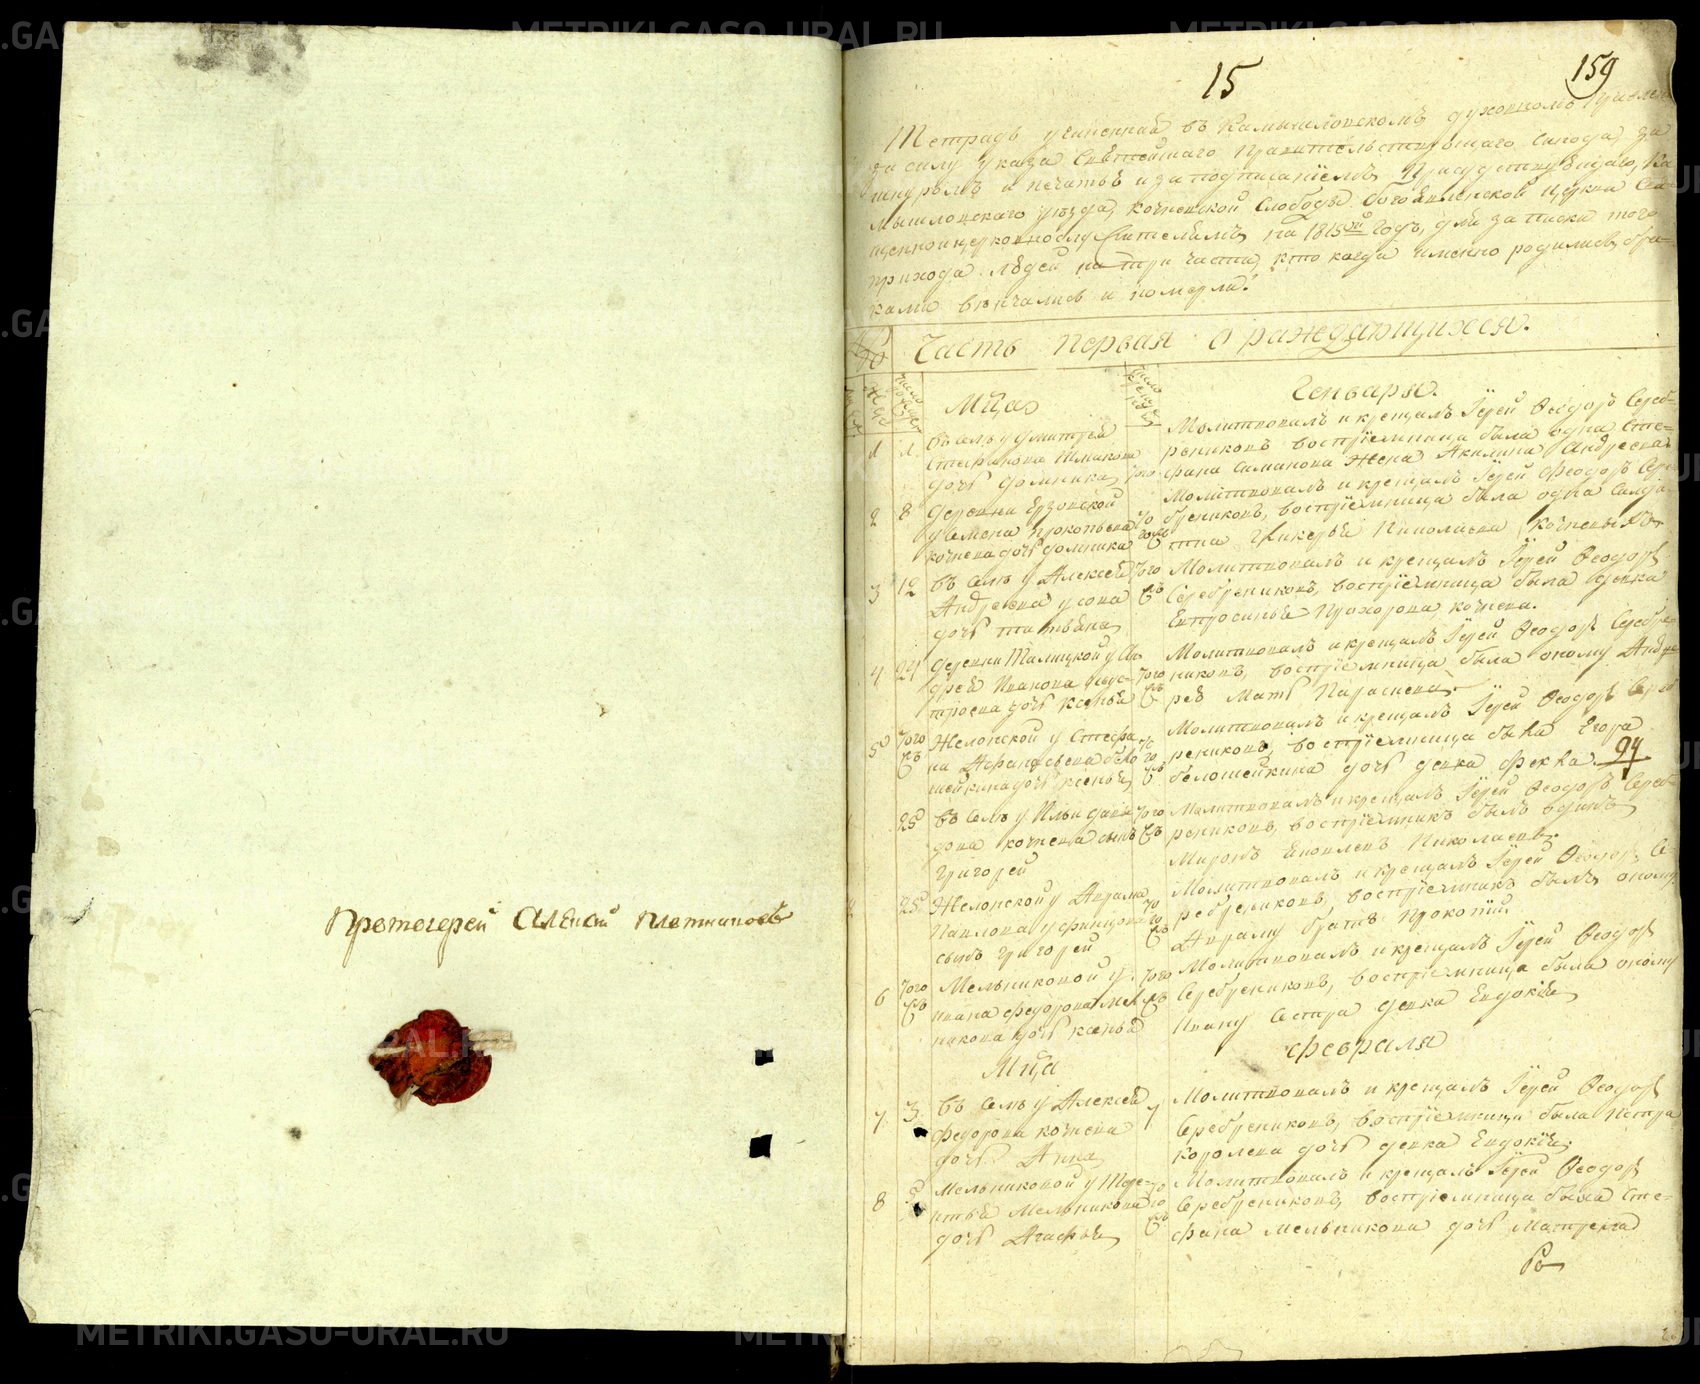 Протоiерей Алексiй Плотниковъ
15
159
Тетрадь учиненная въ Камышловскомъ духовномъ Правле-
въ силу указа Святейшаго Правительствующаго Синода, за
шнуромъ и печатью и за подписанiемъ Присудствующаго, Ка-
мышловскаго уезда, кочневской слободы Богоявленской церкви Свя-
щенноцерковнослужителямъ, на 1815ой Годъ, для записки того
прихода людей на три части, кто когда именно родились, бра-
ками венчались и померли.
Часть первая о раждающихся.
Мца
Генваря.
1
1
въ селе у Дмитрея
Стефанова Шмакова
дочь Домника
Молитвовалъ и крещалъ Iерей Ѳеодоръ Сереб-
рениковъ восприемница была одна Сте-
фана Симанова жена Акилина Андреева
2
8
Деревни Ерзовской
у Семена Прокопьева
кочнева дочь Домника
того
Молитвовалъ и крещалъ Iерей Феодоръ Сере-
брениковъ, восприемница была одна Салда-
тка Гликерья Николаева кочнева
3
12
въ селе у Алексея
Андреева усова
дочь татьяна
того
Молитвовалъ и крещалъ Iерей Ѳеодоръ
Серебрениковъ, восприемница была девка
Евпросинья Прохорова кочнева.
4
24
деревни Талицкой у Ан-
дрея Иванова
дочь Ксенья
того
Молитвовалъ и крещалъ Iерей Ѳеодоръ Серебре-
никовъ, восприемница была оному Анд-
рею Мать Парасковья
5
того
Желонской у Стефа-
на Афанасьева бело-
шейкина дочь ксенья
того
Молитвовалъ и крещалъ Iерей Ѳеодоръ Сереб-
рениковъ, восприемница была Егора
белошейкина дочь девка Фекла
94
25
въ селе у Ильи
кочнева сынъ
Григорей
того
Молитвовалъ и крещалъ Iерей Ѳеодоръ Сереб-
рениковъ, восприемникъ былъ одинъ
Миронъ Яковлевъ Николаевъ
25
Желонской у Аврама
Павлова
сынъ Григорей
того
Молитвовалъ и крещалъ Iерей Ѳеодоръ Се-
ребрениковъ, восприемникъ былъ оному
Авраму братъ Прокопiй
6
того
Мельниковой у
ивана федорова мел
никова дочь ксенья
того
Молитвовалъ и крещалъ Iерей Ѳеодоръ
Серебрениковъ, восприемница была оному
Ивану Сестра девка Евдокiя
Мца
Февраля
7
3
въ селе у Алексея
федорова кочнева
дочь Анна
Молитвовалъ и крещалъ Iерей Ѳеодоръ
Серебрениковъ, восприемница была Петра
королева дочь девка Евдокiя
8
5
Мельниковой у Тере-
нтья Мельникова
дочь Агафья
Молитвовалъ и крещалъ Iерей Ѳеодоръ
Серебрениковъ, восприемница была Сте-
фана мельникова дочь Матрена
METRIKI.GASO-URAL.RU